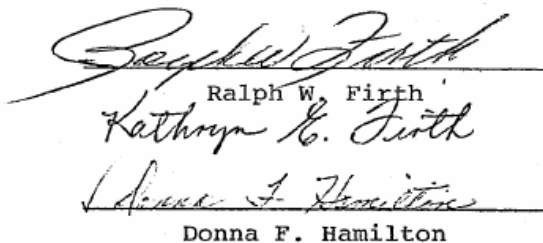 Ralph W Firth
Ralph W. Firth
Kathryn E. Firth
Donna F. Hamilton
Donna F. Hamilton